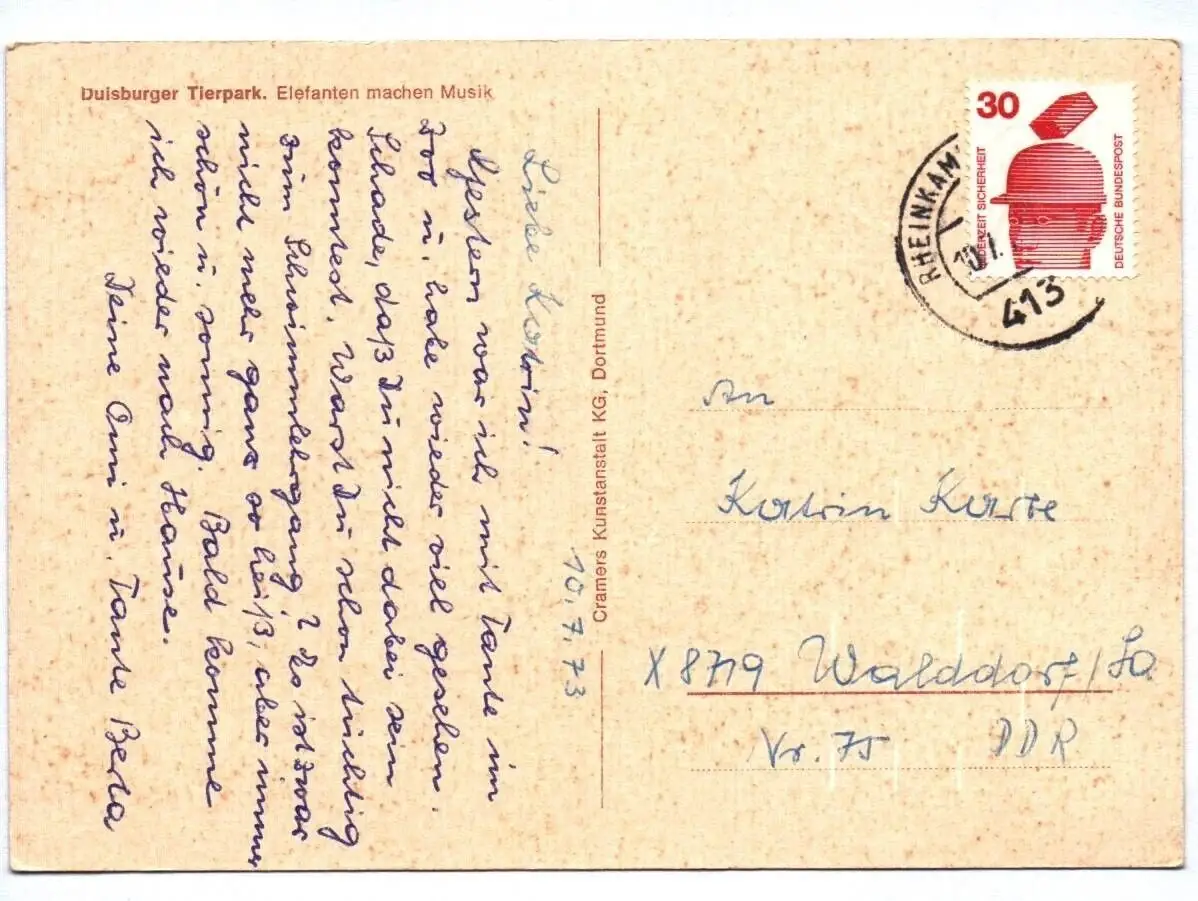 Duisburger Tierpark. Elefanten machen Musik
10.7.73
Liebe Katrin!
Gestern war ich mit Tante im
Zoo u. habe wieder viel gesehen.
Schade, daß Du nicht dabei sein
konntest. Warst Du schon tüchtig
zum Schwimmlehrgang? Es ist zwar
nicht mehr ganz so heiß, aber immer
schön u. sonnig. Bald komme
ich wieder nach Hause.
Deine Omi u. Tante Berta
Cramers Kunstanstalt KG, Dortmund
30
JEDERZEIT SICHERHEIT
DEUTSCHE BUNDESPOST
RHEINKAM
10.7.
413
An
Katrin Karte
X 8719 Walddorf/Sa
Nr. 75 DDR